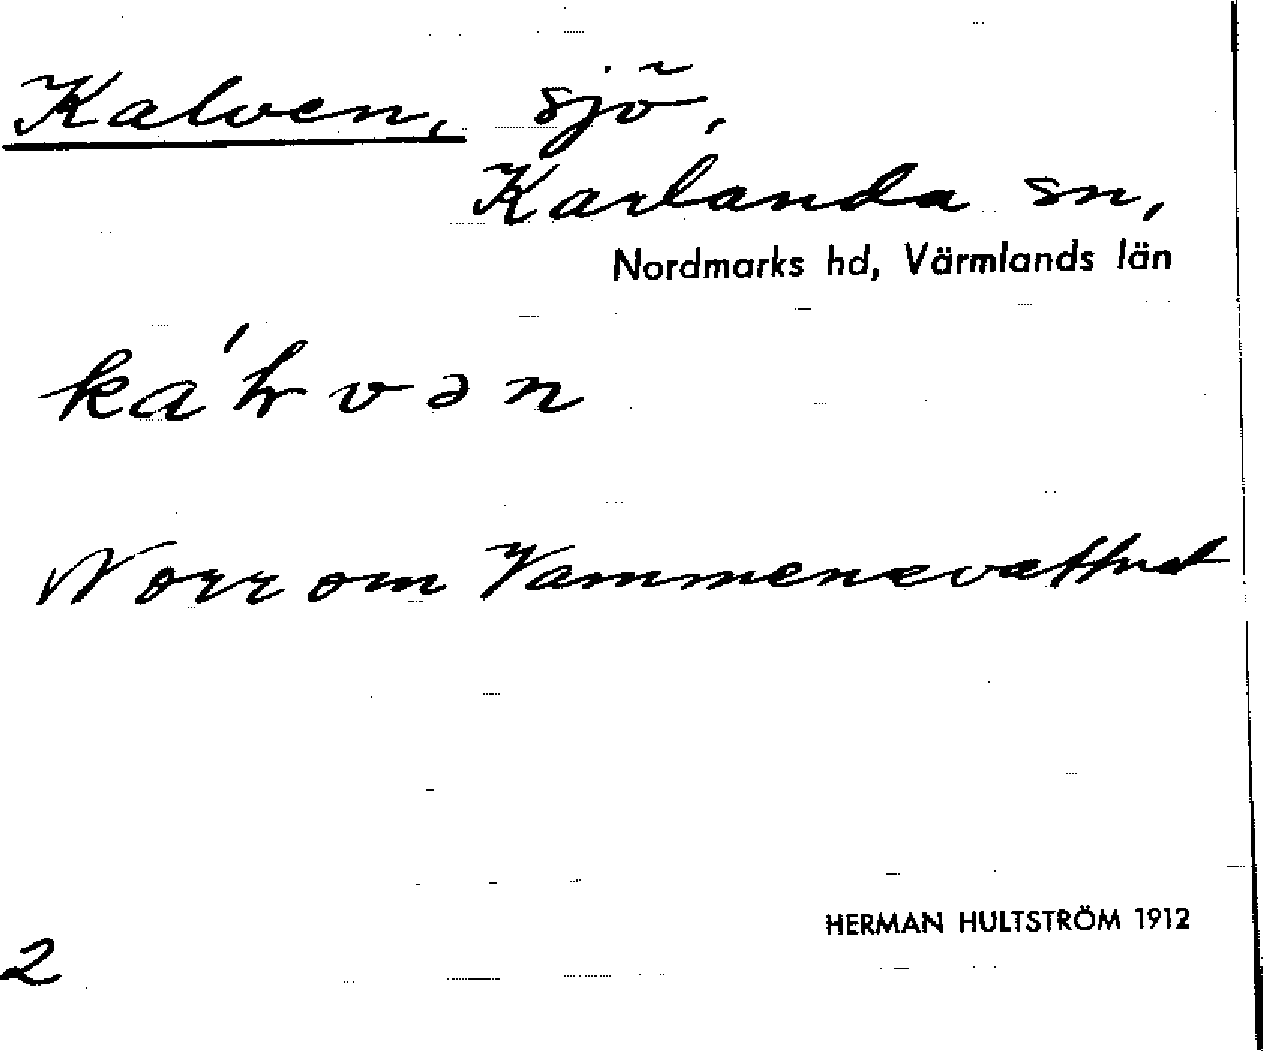 Kalven, sjö,
Karlanda sn,
Nordmarks hd, Värmlands län
Norr om
HERMAN HULTSTRÖM 1912
2